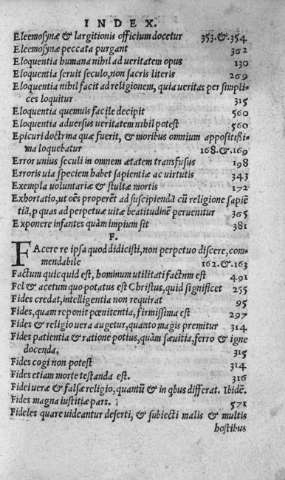 INDEX.
Eleemosynæ & largitionis officium docetur 353. & 354
Eleemosynæ peccata purgant 302
Eloquentia humana nihil ad ueritatem opus 130
Eloquentia seruit seculo, non sacris literis 209
Eloquentia nihil facit ad religionem, quia ueritas per simpli
ces loquitur 315
Eloquentia quemuis facile decipit 560
Eloquentia aduersus ueritatem nihil potest 560
Epicuri doctrina quæ fuerit, & moribus omnium appositissi
ma loquebatur 168. & 169
Error unius seculi in omnem ætatem transfusus 198
Erroris uia speciem habet sapientiæ ac uirtutis 343
Exempla uoluntariæ & stultæ mortis 172
Exhortatio, ut oẽs properẽt ad suscipiendã cũ religione sapiẽ
tiã, p quas ad perpetuæ uitæ beatitudinẽ peruenitur 365
Exponere infantes quàm impium sit 381
F.
FAcere re ipsa quod didicisti, non perpetuo discere, com=
mendabile 162. & 163
Factum quicquid est, hominum utilitati factum est 401
Fel & acetum quo potatus est Christus, quid significet 255
Fides credat, intelligentia non requirat 95
Fides, quam reponit pœnitentia, firmissima est 297
Fides & religio uera augetur, quanto magis premitur 314
Fides patientia & ratione potius, quàm sæuitia, ferro & igne
docenda, 315
Fides cogi non potest 314
Fides etiam morte testanda est. 316
Fidei ueræ & falsæ religio, quantũ & in qbus differat. Ibidẽ.
Fides magna iustitiæ pars. 571
Fideles quare uideantur deserti, & subiecti malis & multis
hostibus